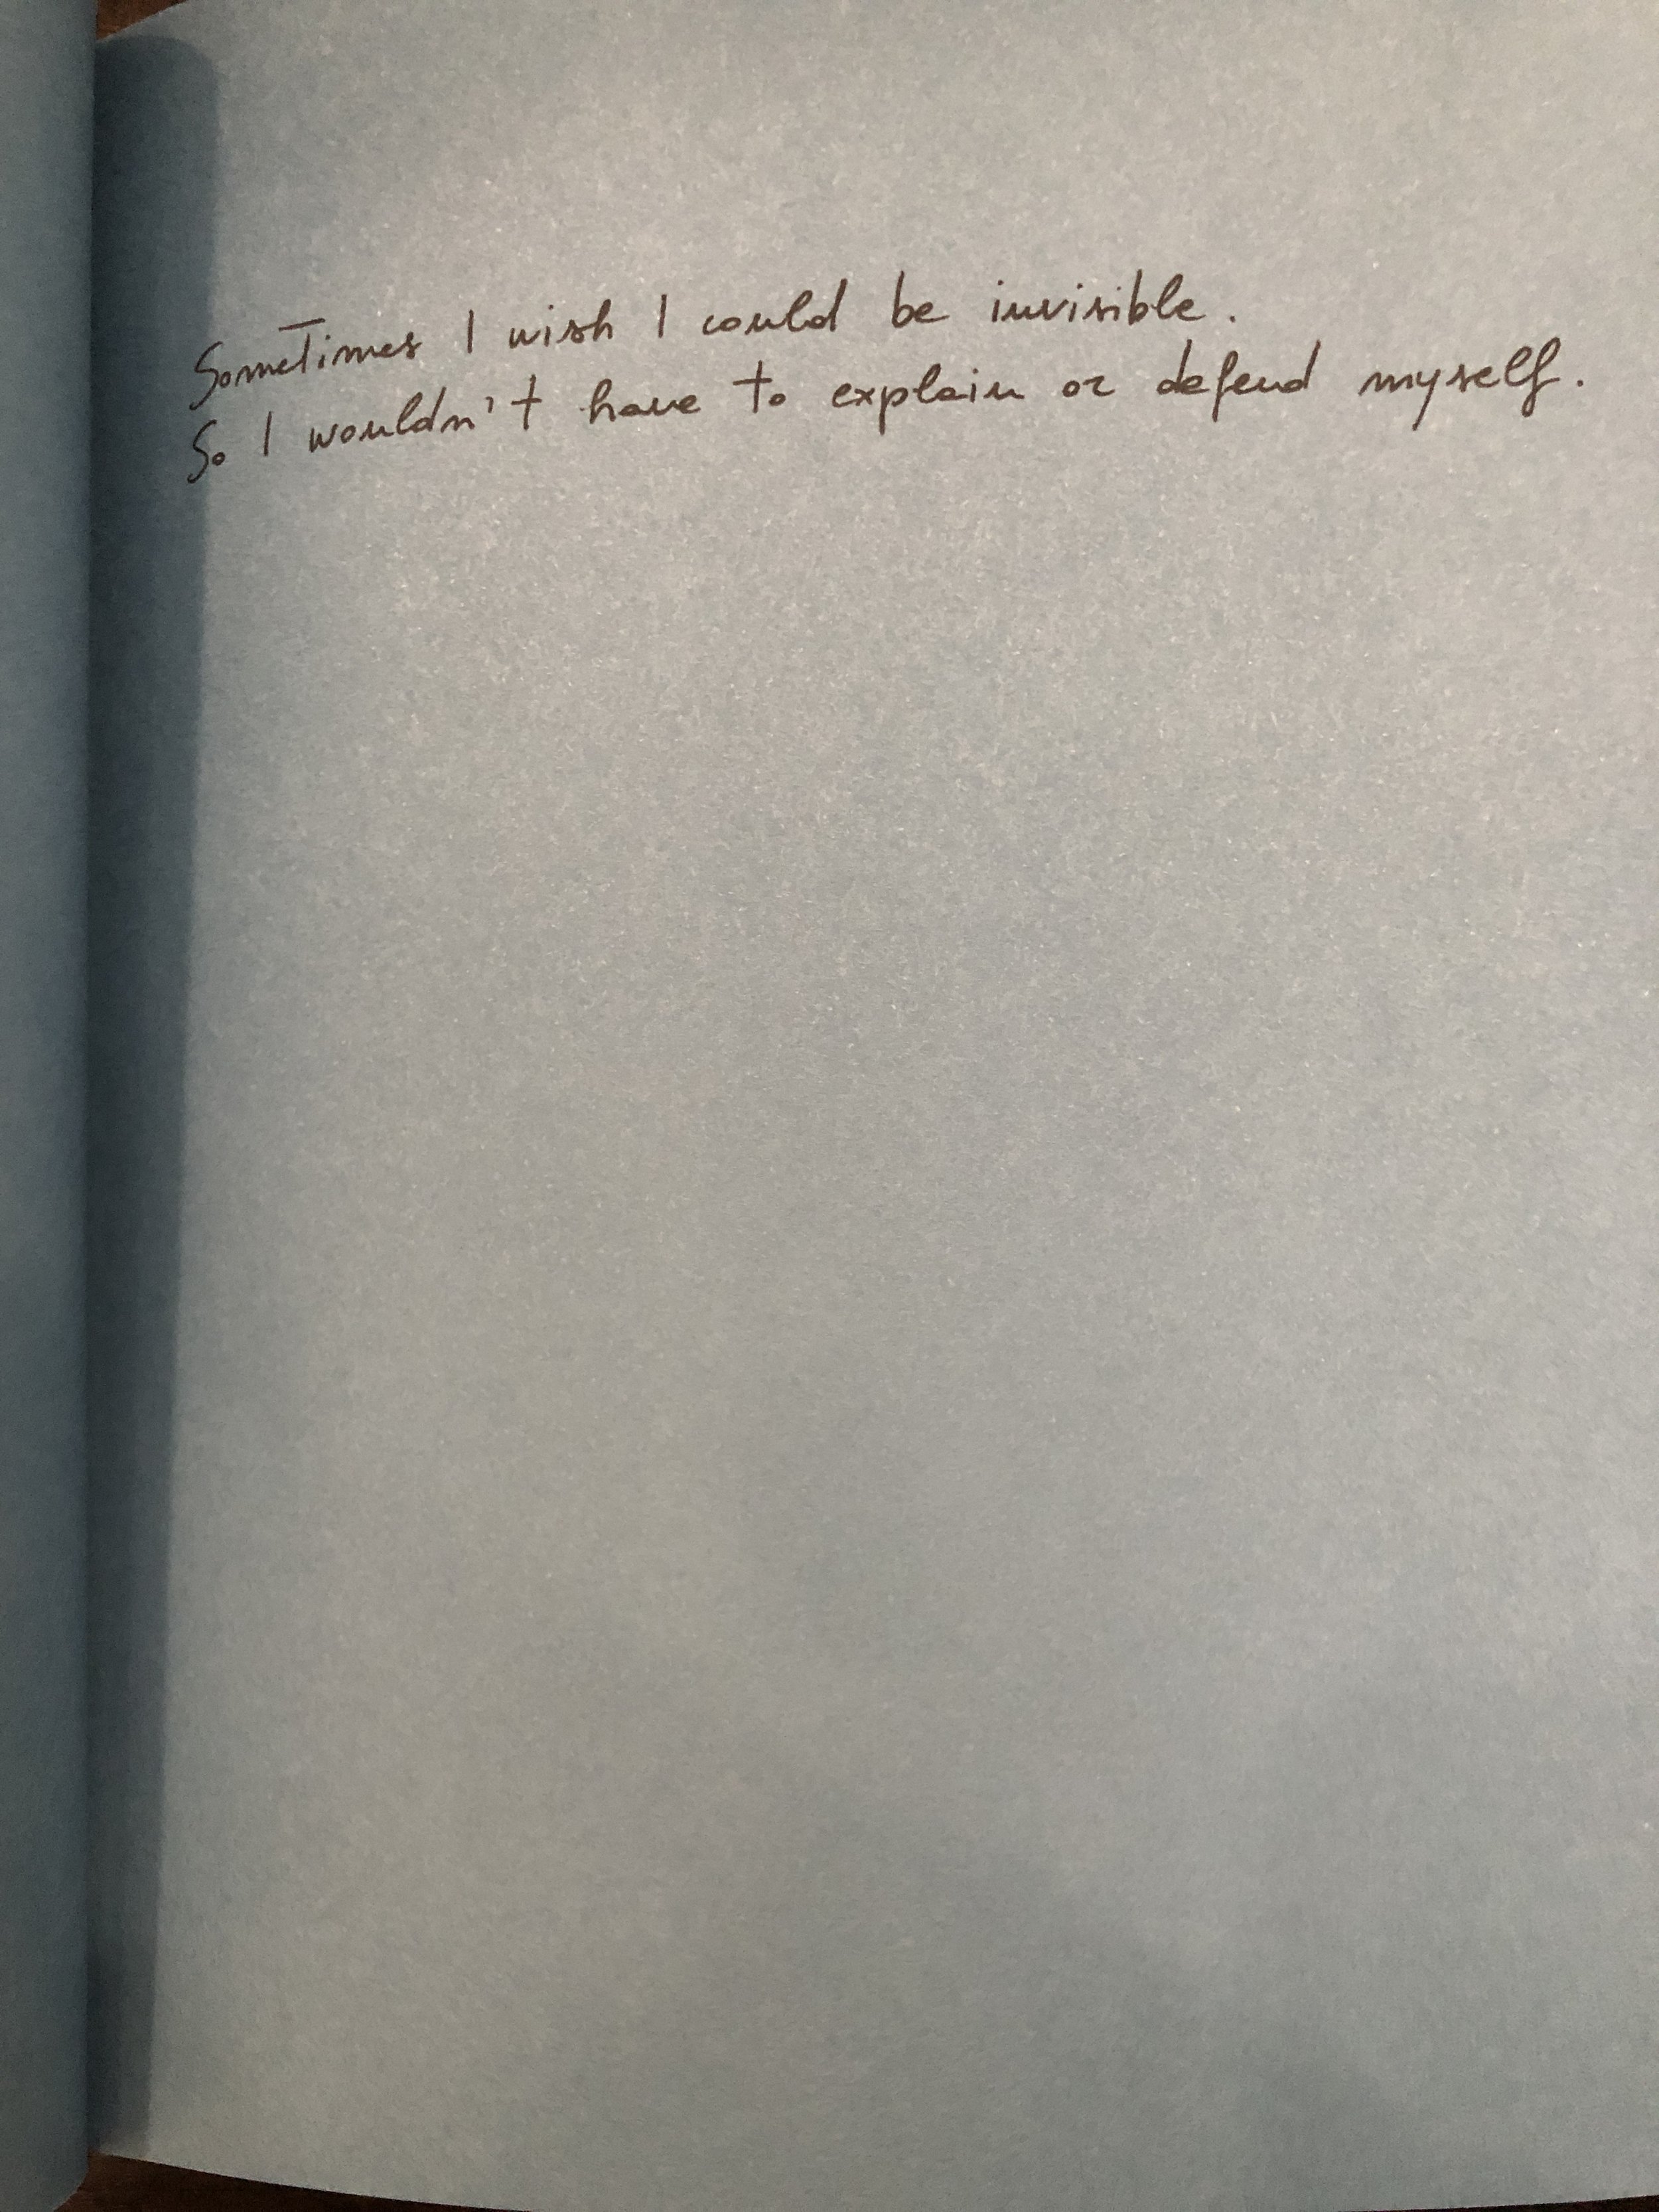 Sometimes I wish I could be invisible.
So I wouldn't have to explain or defend myself.